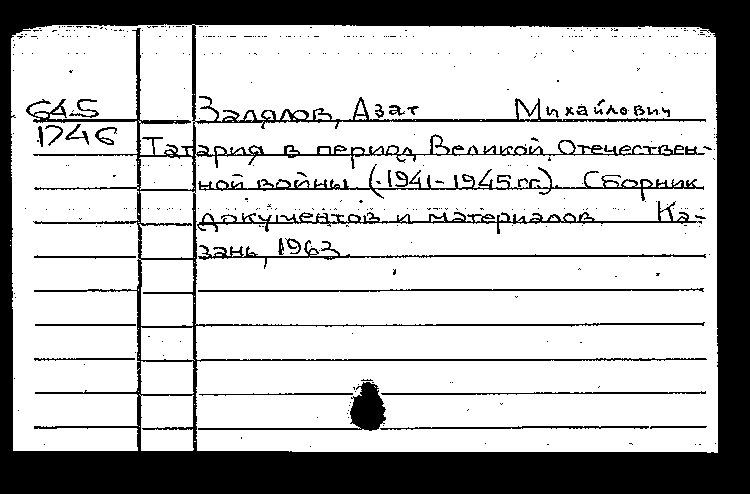 645 Залялов, Азат Михайлович
1746
Татария в период Великой Отечествен-
ной войны (1941-1945 гг.). Сборник
документов и материалов Ка-
зань, 1963.